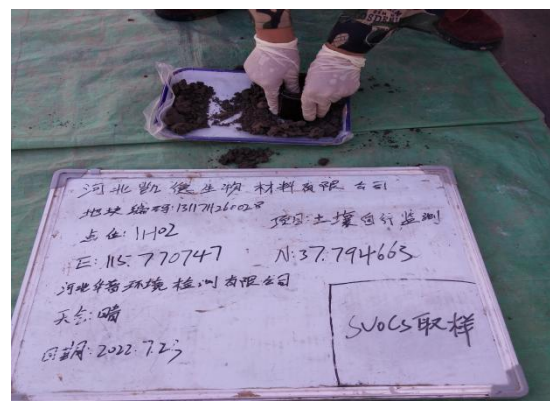 河北凯德生物材料有限公司
地块编码:1311711260028
项目:土壤自行监测
点位:1H02
E:115.770747 N:37.794665
河北华普环境检测有限公司
天气:晴
日期:2022.7.23
SVOCS取样